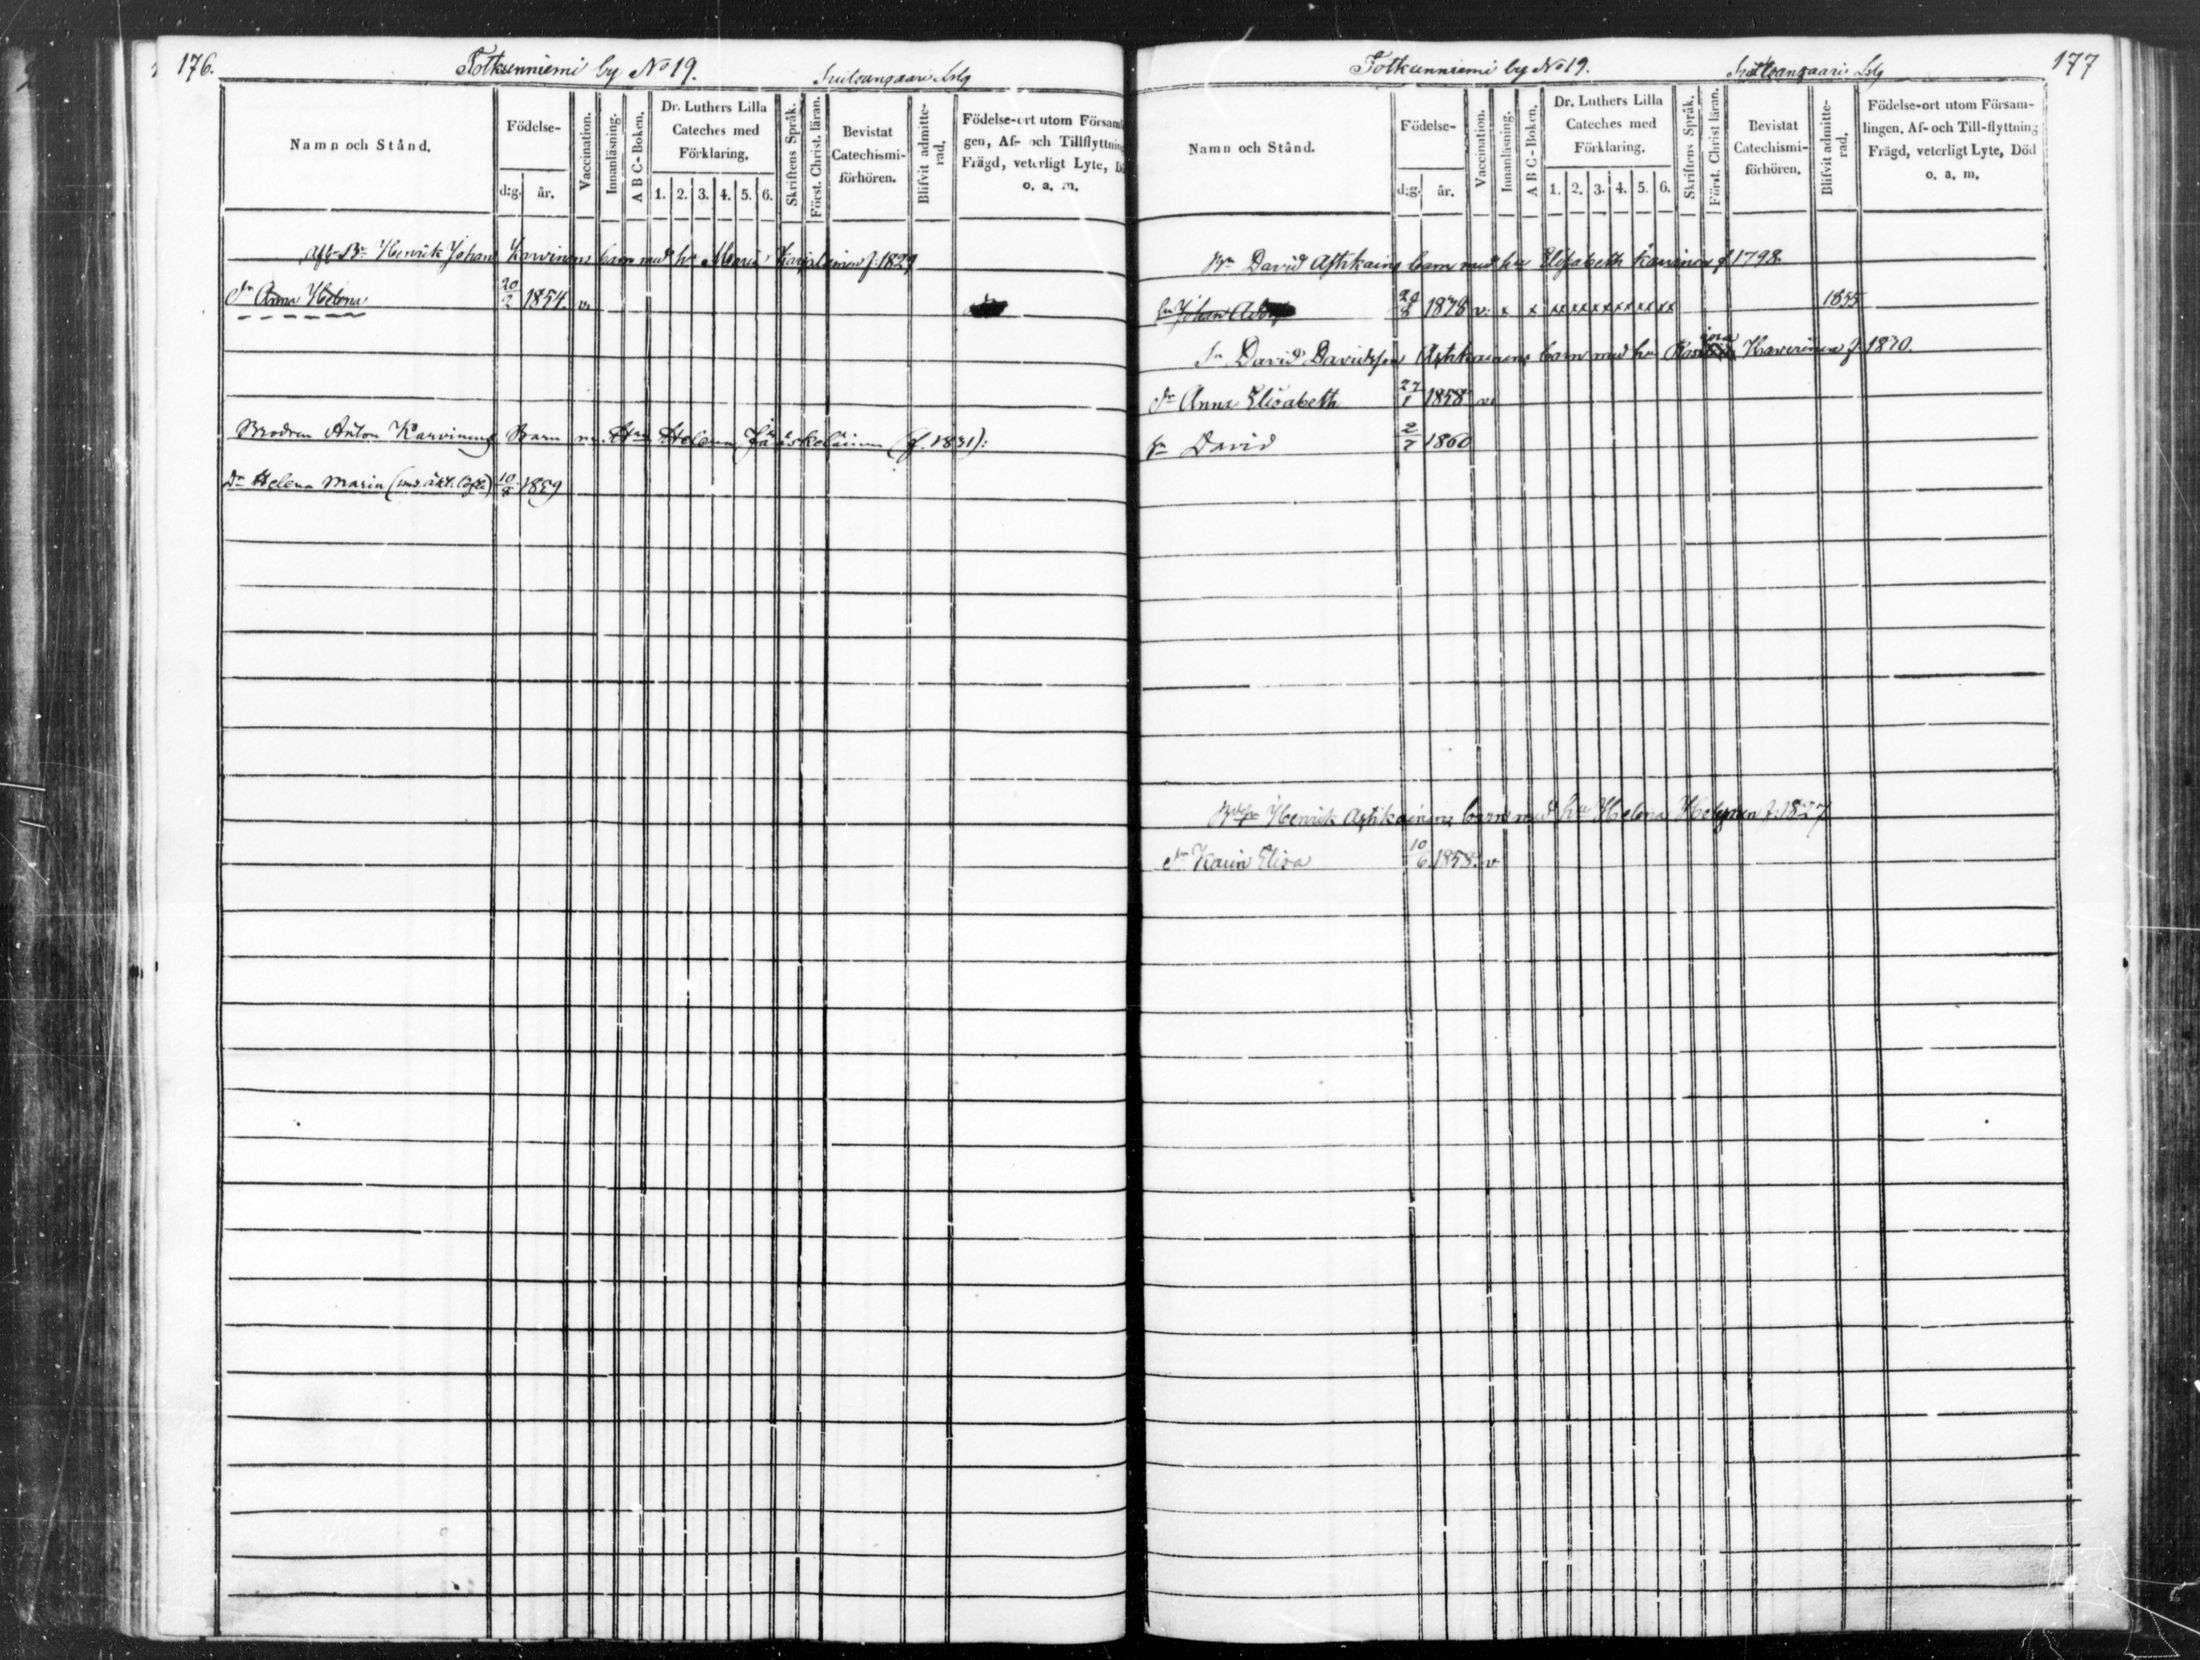 176.
Totkunniemi by No 19.
Namn och Stånd.
Födelse-
d:g.
år.
Vaccination.
Innanläsning.
A B C-Boken.
Dr. Luthers Lilla
Cateches med
Förklaring.
1. 2. 3. 4. 5. 6.
Skriftens Språk.
Först. Christ. läran.
Bevistat
Catechismi-
förhören.
Blifvit admitte-
rad.
Födelse-ort utom Försam
gen, Af- och Tillflyttning
Frägd, veterligt Lyte, D
o. a. m.
Henrik Johan Karvinens barn med hu Maria f 1829
dr Anna Helena 20/2 1854. v.
Brodren Anton Karvinens Barn m. Hu Helena Jääskeläinen (f. 1831):
Dr Helena Maria 10/8 1859
177
Totkunniemi by No 19.
Namn och Stånd.
Födelse-
d:g.
år.
Vaccination.
Innanläsning.
A B C-Boken.
Dr. Luthers Lilla
Cateches med
Förklaring.
1. 2. 3. 4. 5. 6.
Skriftens Språk.
Först. Christ läran.
Bevistat
Catechismi-
förhören.
Blifvit admitte-
rad.
Födelse-ort utom Försam-
lingen, Af- och Till-flyttning
Frägd, veterligt Lyte, Död
o. a. m.
Bn David barn med hu Elisabeth f 1798
Sn Johan v. x x xxxxxxxxxxxx 1855
Sn David Davidsson barn med hu Kaverinen f.
dr Anna Elisabeth 27/1 1858 v.
Sn David 2/7 1860
Henrik barn med hu Helena f. 1827
dr Karin Elisa 10/6 1858. v